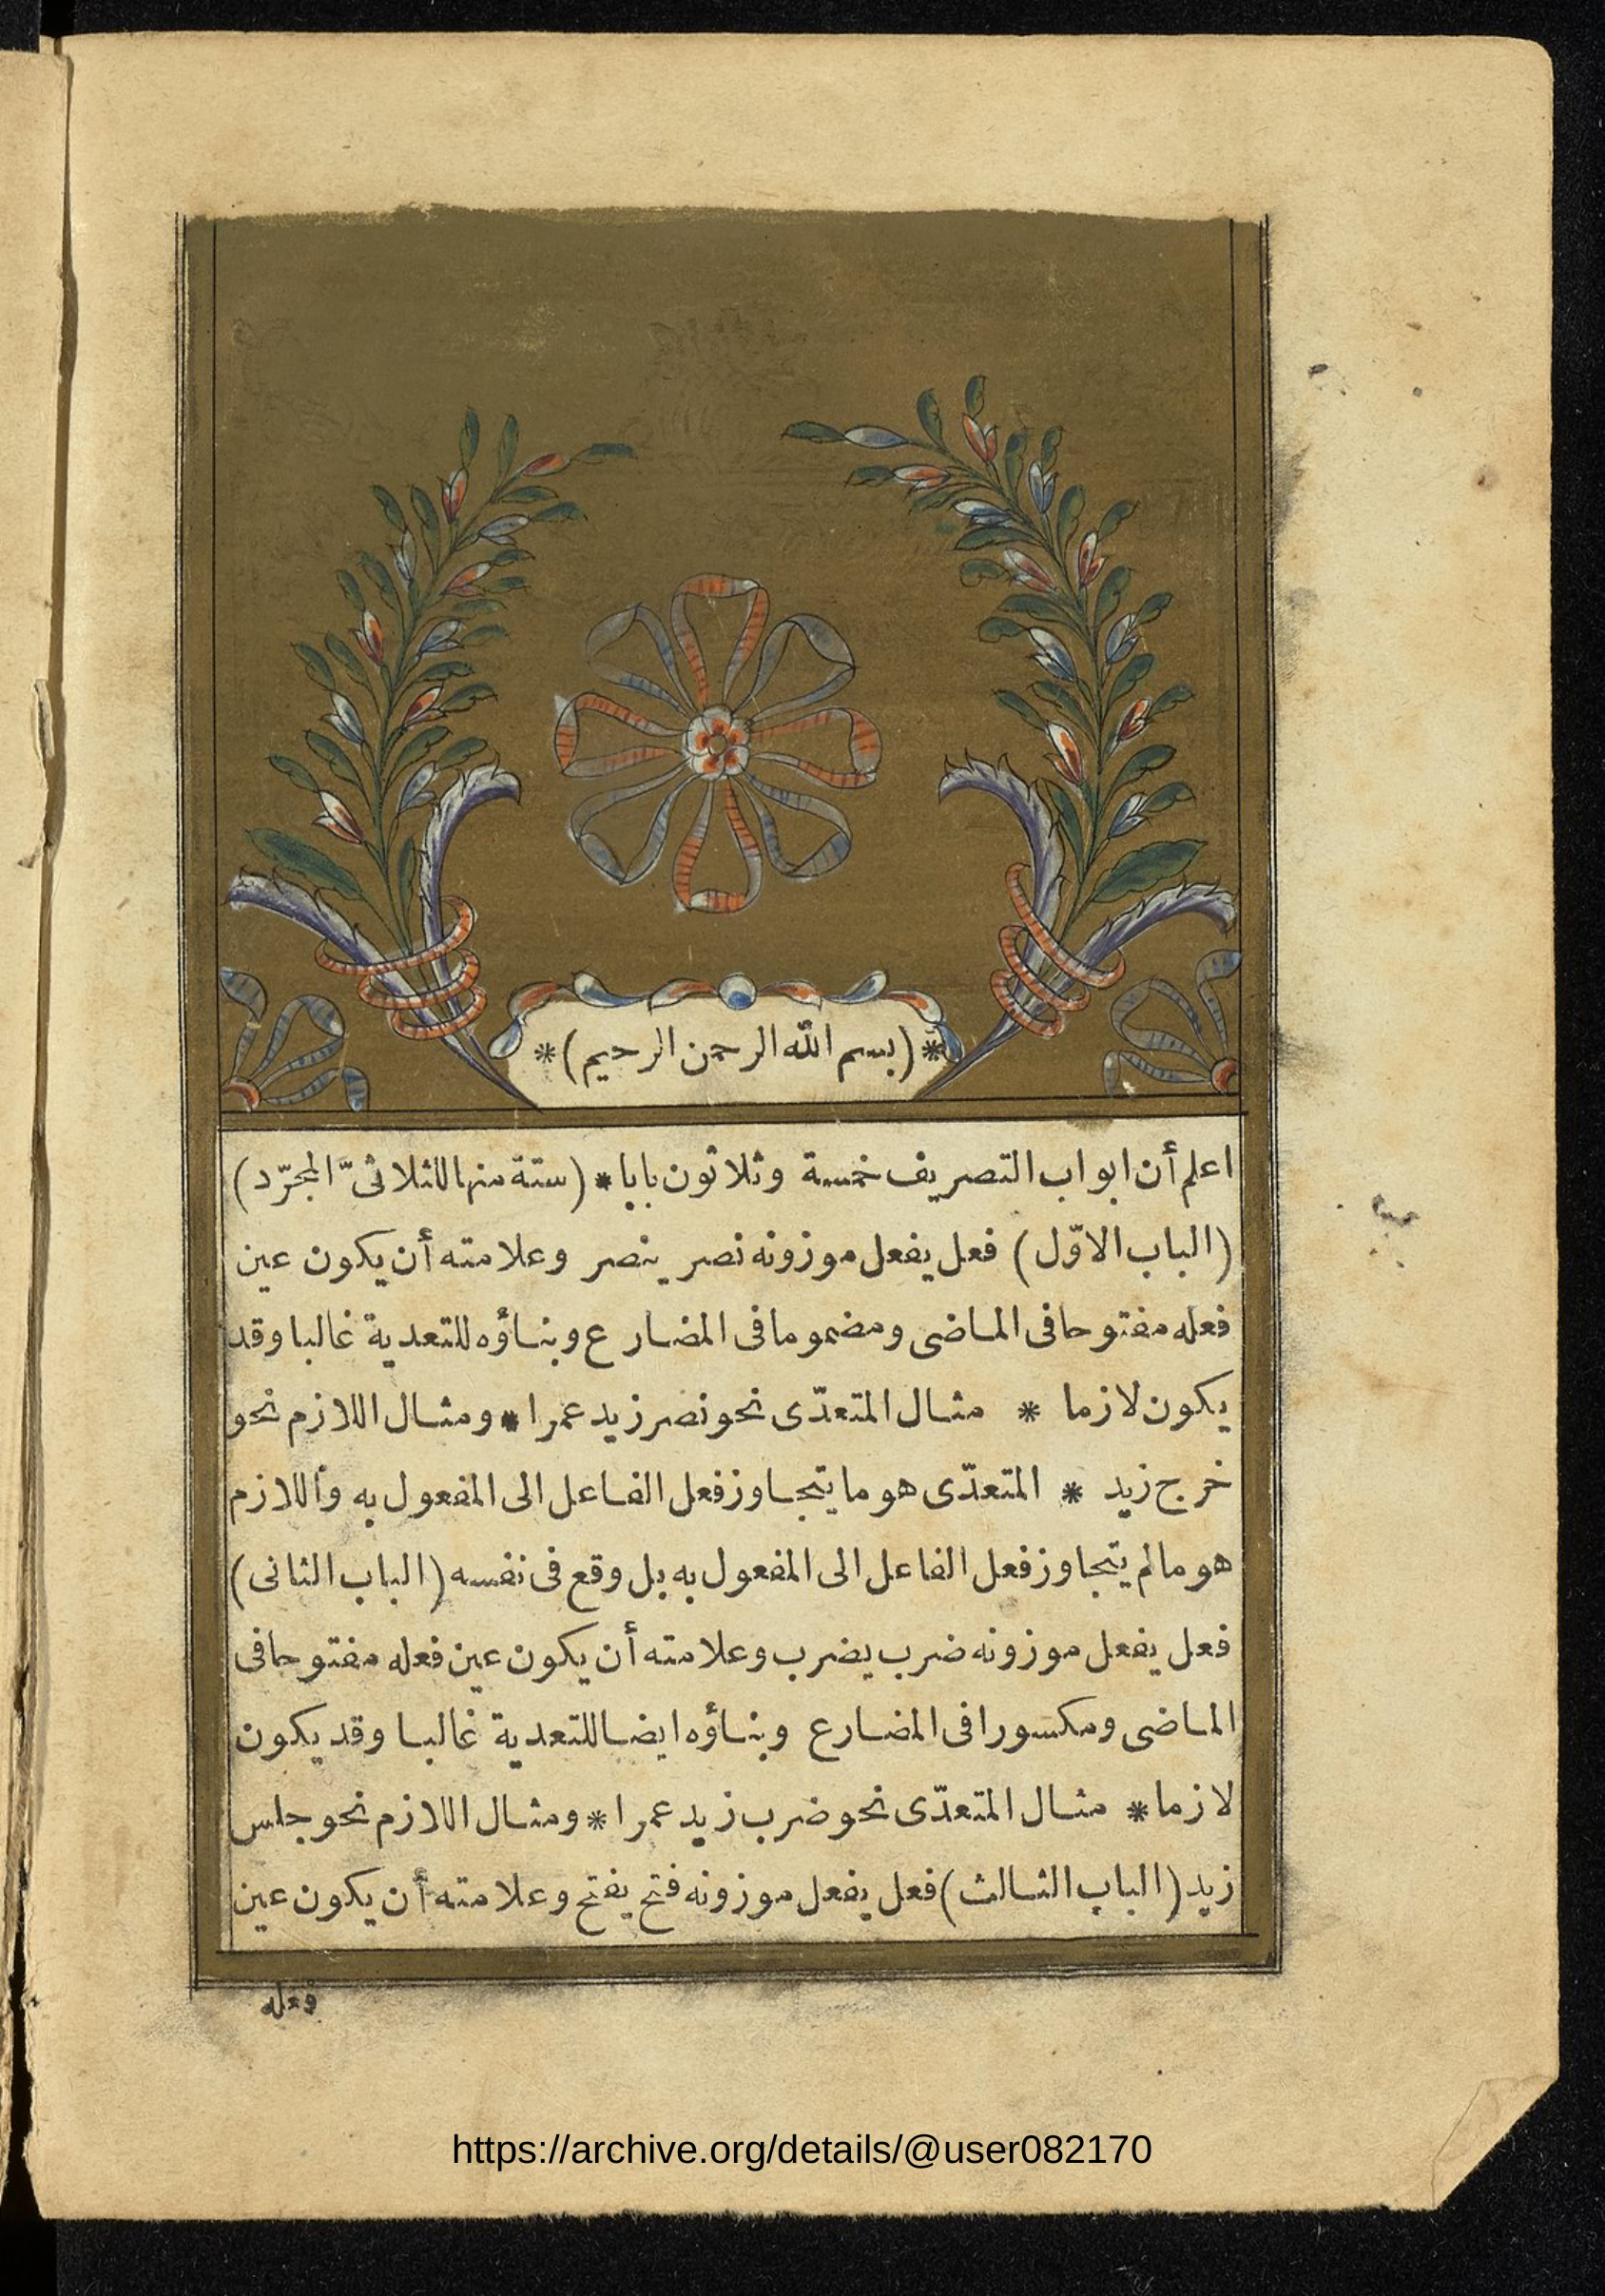 *(بسم الله الرحمن الرحيم)*
اعلم أن ابواب التصريف خمسة وثلاثون بابا * (ستة منها للثلاثىّ المجرّد)
(الباب الاوّل) فعل يفعل موزونه نصر ينصر وعلامته أن يكون عين
فعله مفتوحا فى الماضى ومضموما فى المضارع وبناؤه للتعدية غالبا وقد
يكون لازما * مثال المتعدّى نحو نصر زيد عمرا * ومثال اللازم نحو
خرج زيد * المتعدّى هو ما يتجاوز فعل الفاعل الى المفعول به واللازم
هو مالم يتجاوز فعل الفاعل الى المفعول به بل وقع فى نفسه (الباب الثانى)
فعل يفعل موزونه ضرب يضرب وعلامته أن يكون عين فعله مفتوحا فى
الماضى ومكسورا فى المضارع وبناؤه ايضا للتعدية غالبا وقد يكون
لازما * مثال المتعدّى نحو ضرب زيد عمرا * ومثال اللازم نحو جلس
زيد (الباب الثالث) فعل يفعل موزونه فتح يفتح وعلامته أن يكون عين
فعله
https://archive.org/details/@user082170